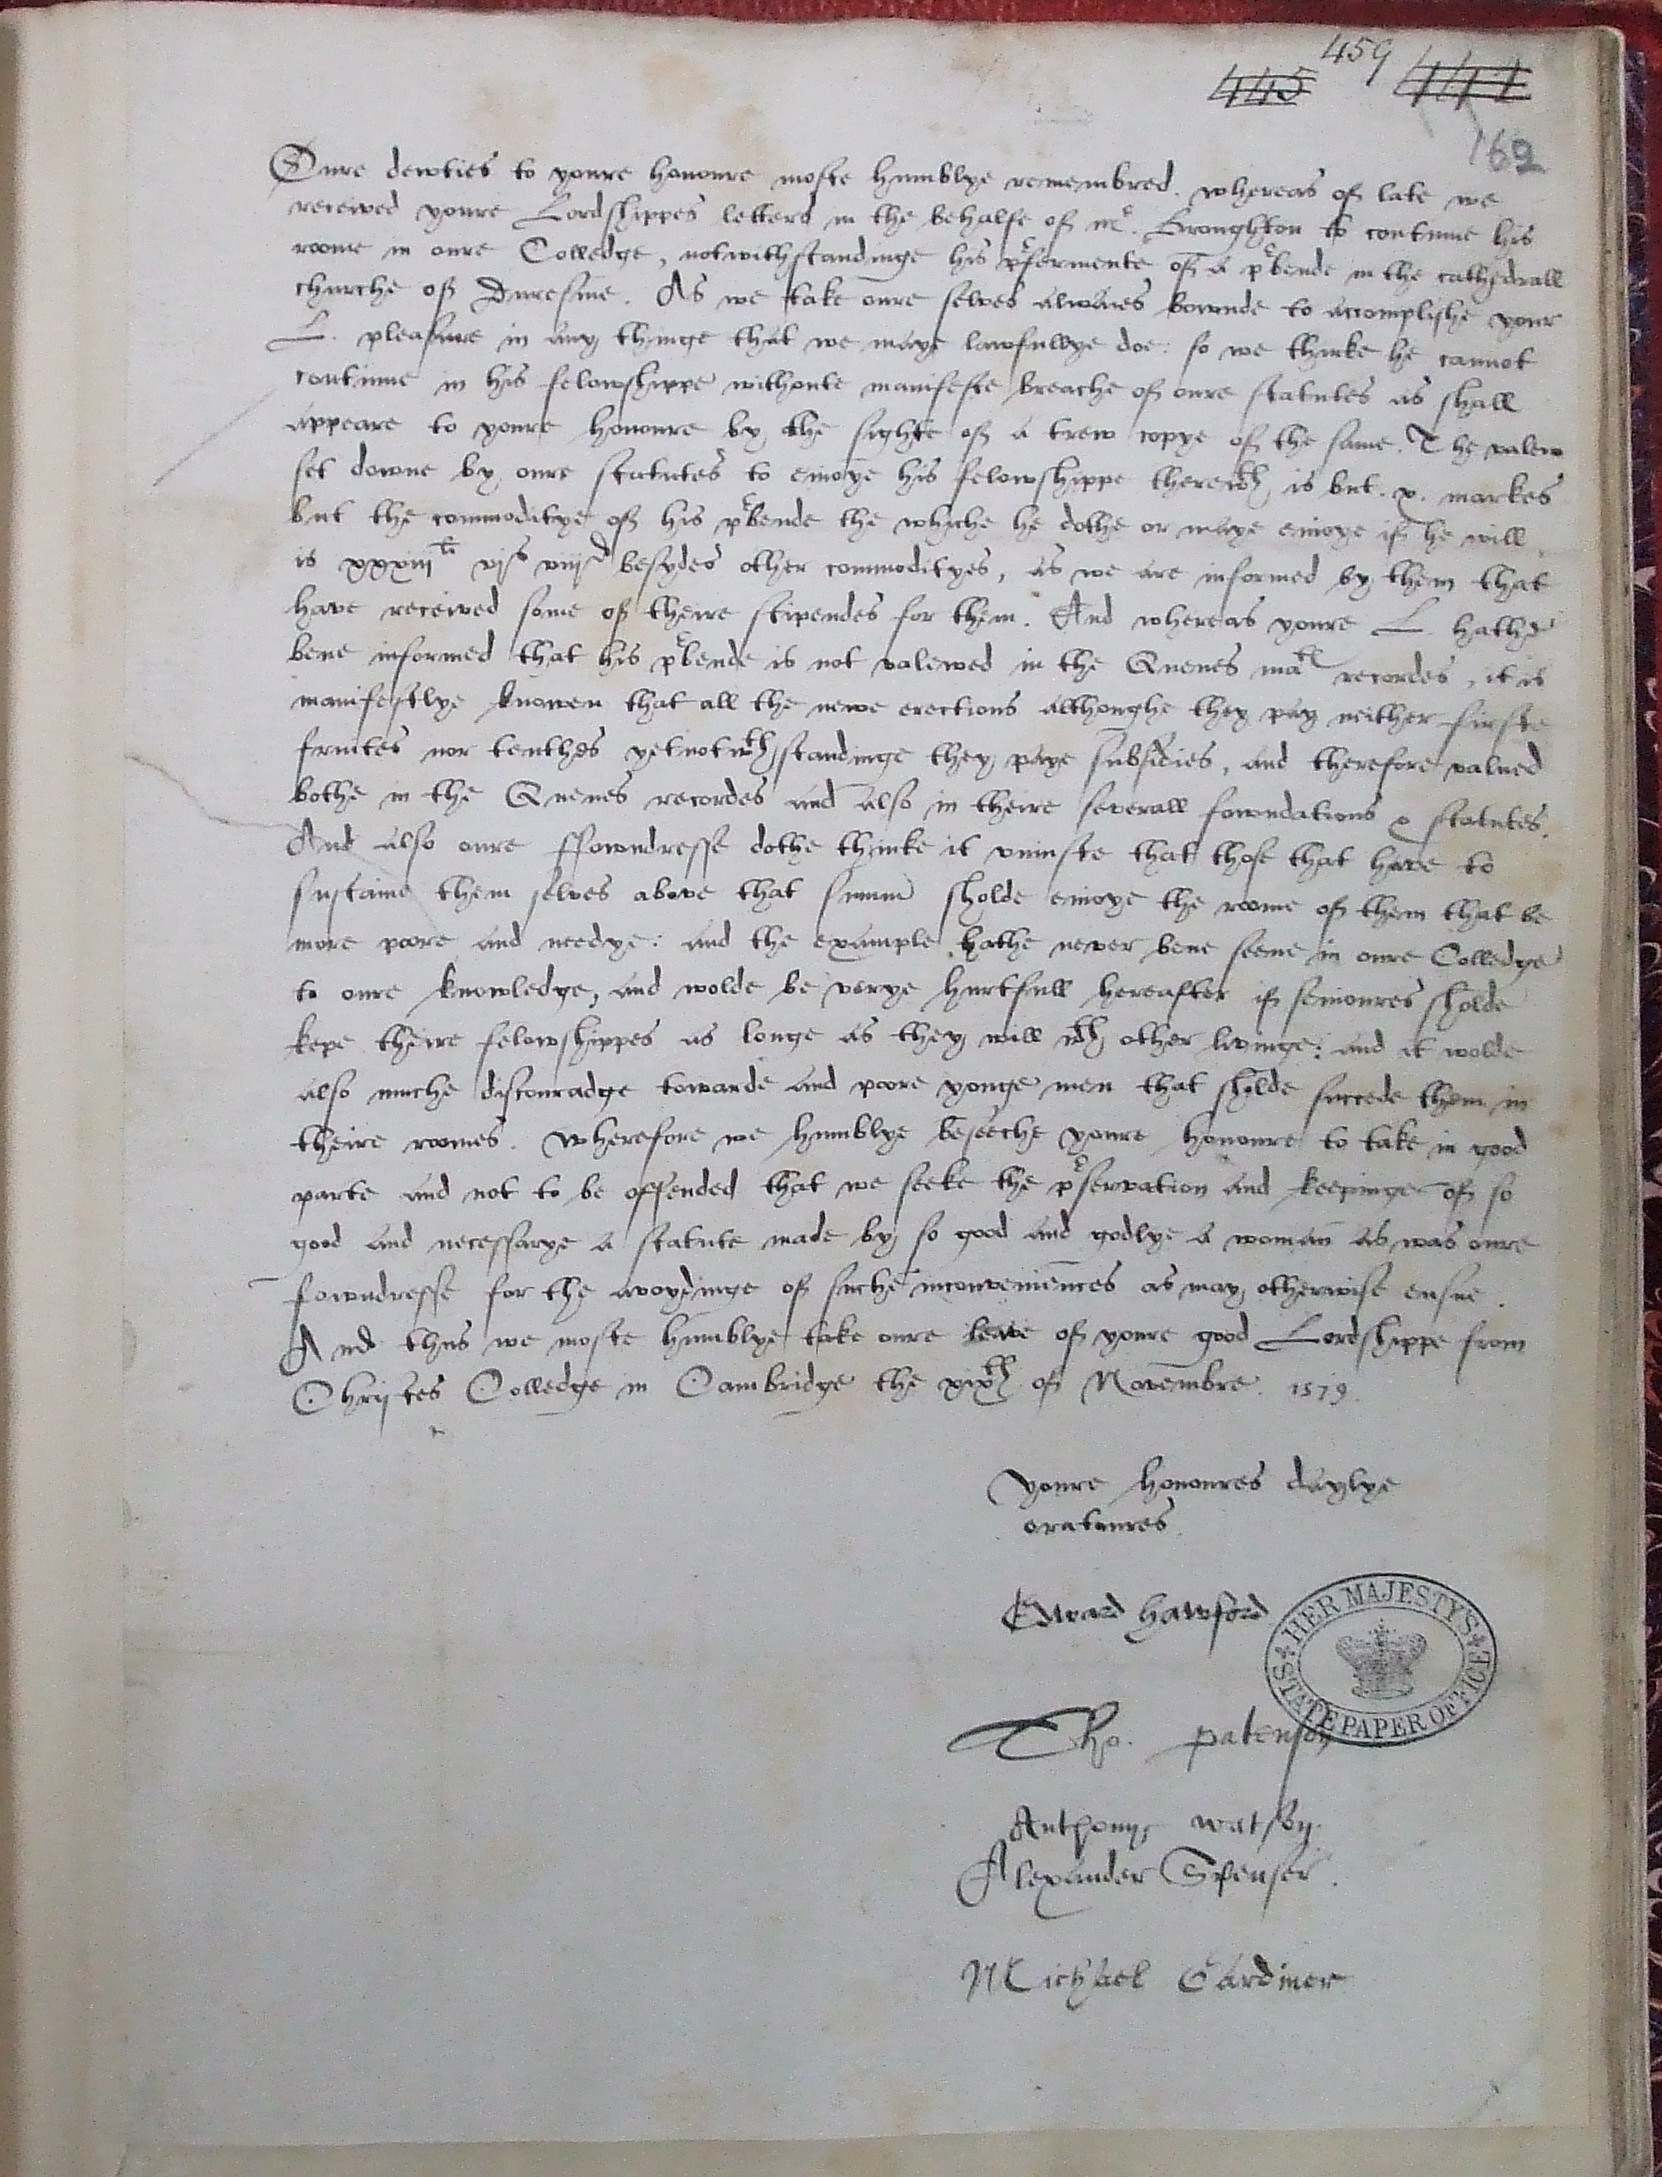 459
445 441
162
Oure dewties to youre honoure moste humblye remembred. whereas of late we
received youre Lordshippes letters in the behalfe of mr. Broughton to continue his
roome in oure Colledge, notwithstandinge his pfermente of a pbende in the cathedrall
churche of Duresme. As we take oure selves alwaies bownde to accomplishe your
L. pleasure in any thinge that we maye lawfullye doe: so we thinke he cannot
continue in his felowshippe withoute manifeste breache of oure statutes as shall
appeare to youre honoure by the sighte of a trew copye of the same. The valew
set downe by oure statutes to enioye his felowshippe therewth is but .x. markes
but the commoditye of his pbende the whiche he dothe or maye enioye if he will
is xxxiijli vjs viijd besydes other commodityes, as we are informed by them that
have received some of theire stipendes for them. And whereas youre L. hathe
bene informed that his pbende is not valewed in the Quenes matie recordes, it is
manifestlye knowen that all the newe erections althoughe they pay neither firste
fruites nor tenthes yet notwthstandinge they paye subsidies, and therefore valued
bothe in the Quenes recordes and also in theire severall fowndations & statutes.
And also oure ffowndresse dothe thinke it uniuste that those that have to
sustaine them selves above that summ sholde enioye the roome of them that be
more poore and needye: and the example hathe never bene seene in oure Colledge
to oure knowledge, and wolde be verye hurtfull hereafter if senioures sholde
kepe theire felowshippes as longe as they will wth other livinge: and it wolde
also muche discouradge towarde and poore yonge men that sholde succede them in
theire roomes. Wherefore we humblye beseeche youre honoure to take in good
parte and not to be offended that we seeke the pservation and keepinge of so
good and necessarye a statute made by so good and godlye a woman as was oure
fowndresse for the avoydinge of suche inconveniences as may otherwise ensue.
And thus we moste humblye take oure leave of youre good Lordshippe from
Christes Colledge in Cambridge the xixth of Novembre. 1579.
Youre honoures daylye
oratoures.
Edward Hawford
HER MAJESTY'S STATE PAPER OFFICE
Tho. patenson
Anthony watson
Alexander Spenser.
Michael Gardiner